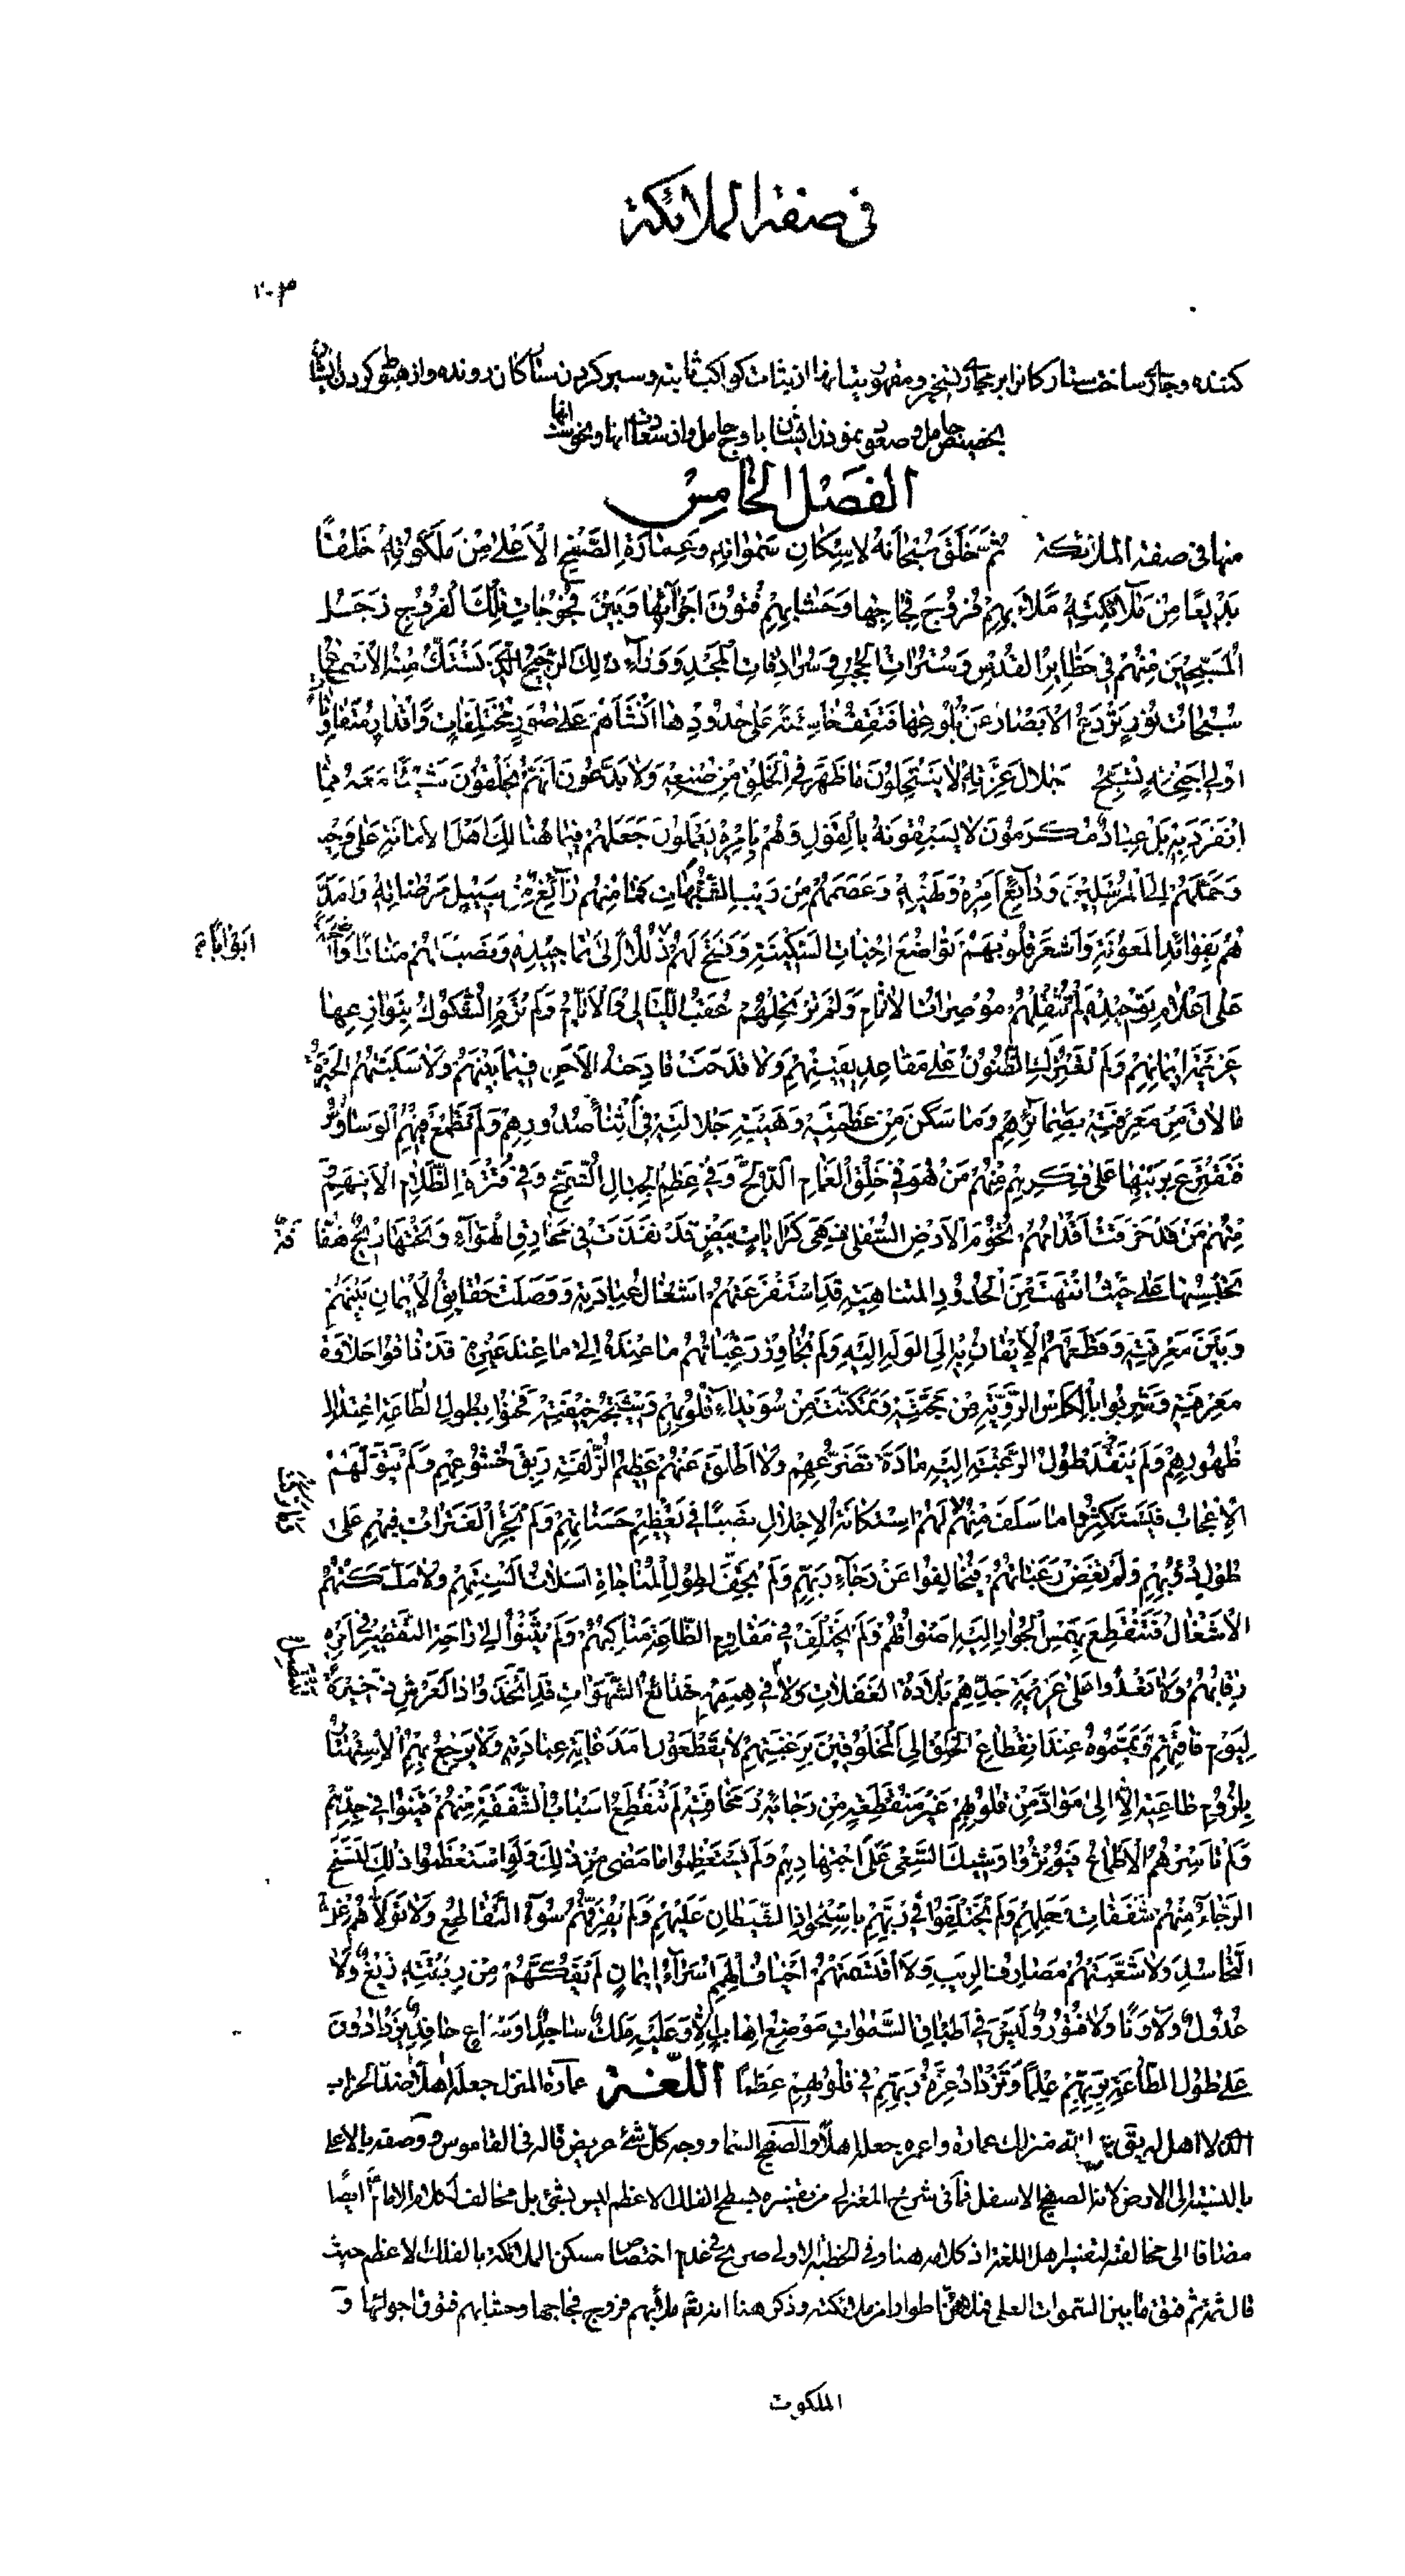 في صفة الملائكة
٢٠٣
كننده وجاری ساختن ستارگان را بر مجاری تسخیر و مقهوریت آنها از ثبات کواکب ثابته و سیر کردن ستارگان رونده و از هبوط کردن ایشان
بحضیض حامل و صعود نمودن ایشان باوج حامل و از سعادت آنها و نحوست آنها
الفصل الخامس
منها في صفة الملائكة ثُمَّ خَلَقَ سُبْحانَهُ لِاِسْكانِ سَمٰواتِهِ وَعِمارَةِ الصَّفيحِ الْأَعْلىٰ مِنْ مَلَكُوتِهِ خَلْقًا
بَديعًا مِنْ مَلآئِكَتِهِ مَلَاءَ بِهِمْ فُرُوجَ فِجاجِها وَحَشابِهِمْ فُتُوقَ أَجْوآئِها وَبَيْنَ فَجَواتِ تِلْكَ الْفُرُوجِ زَجَلُ
الْمُسَبِّحينَ مِنْهُمْ في حَظائِرِ الْقُدْسِ وَسُتُراتِ الْحُجُبِ وَسُرادِقاتِ الْمَجْدِ وَوَرآءَ ذٰلِكَ الرَّجيجِ الَّذي تَسْتَكُّ مِنْهُ الْأَسْماعُ
سُبُحاتُ نُورٍ تَرْدَعُ الْأَبْصارَ عَنْ بُلُوغِها فَتَقِفُ خاسِئَةً عَلىٰ حُدُودِها أَنْشَأَهُمْ عَلىٰ صُوَرٍ مُخْتَلِفاتٍ وَأَقْدارٍ مُتَفاوِتاتٍ
اولي أَجْنِحَةٍ تُسَبِّحُ جَلالَ عِزَّتِهِ لا يَنْتَحِلُونَ ما ظَهَرَ فِي الْخَلْقِ مِنْ صُنْعِهِ وَلا يَدَّعُونَ أَنَّهُمْ يَخْلُقُونَ شَيْئًا مَعَهُ مِمَّا
انْفَرَدَ بِهِ بَلْ عِبادٌ مُكْرَمُونَ لا يَسْبِقُونَهُ بِالْقَوْلِ وَهُمْ بِأَمْرِهِ يَعْمَلُونَ جَعَلَهُمْ فيما هُنالِكَ أَهْلَ الْأَمانَةِ عَلىٰ وَحْيِهِ
وَحَمَّلَهُمْ إِلَى الْمُرْسَلينَ وَدآئِعَ أَمْرِهِ وَنَهْيِهِ وَعَصَمَهُمْ مِنْ رَيْبِ الشُّبُهاتِ فَما مِنْهُمْ زآئِغٌ عَنْ سَبيلِ مَرْضاتِهِ وَأَمَدَّ
هُمْ بِفَوائِدِ الْمَعُونَةِ وَأَشْعَرَ قُلُوبَهُمْ تَواضُعَ إِخْباتِ السَّكينَةِ وَفَتَحَ لَهُمْ أَبْوابًا ذُلُلًا إِلىٰ تَماجيدِهِ وَنَصَبَ لَهُمْ مَنارًا واضِحَةً
عَلىٰ أَعْلامِ تَوْحيدِهِ لَمْ تُثْقِلْهُمْ مُوصِراتُ الْآثامِ وَلَمْ تَرْتَحِلْهُمْ عُقَبُ اللَّيالي وَالْأَيّامِ وَلَمْ تَرْمِ الشُّكُوكُ بِنَوازِعِها
عَزيمَةَ إيمانِهِمْ وَلَمْ تَعْتَرِكِ الظُّنُونُ عَلىٰ مَعاقِدِ يَقينِهِمْ وَلا قَدَحَتْ قادِحَةُ الْإِحَنِ فيما بَيْنَهُمْ وَلا سَلَبَتْهُمُ الْحَيْرَةُ
ما لاقَ مِنْ مَعْرِفَتِهِ بِضَمآئِرِهِمْ وَما سَكَنَ مِنْ عَظَمَتِهِ وَهَيْبَةِ جَلالَتِهِ في أَثْنآءِ صُدُورِهِمْ وَلَمْ تَطْمَعْ فيهِمُ الْوَساوِسُ
فَتَقْتَرِعَ بِرَيْنِها عَلىٰ فِكْرِهِمْ مِنْهُمْ مَنْ هُوَ في خَلْقِ الْغَمامِ الدُّلَّحِ وَفي عِظَمِ الْجِبالِ الشُّمَّخِ وَفي قُتْرَةِ الظَّلامِ الْأَيْهَمِ
مِنْهُمْ مَنْ قَدْ خَرَقَتْ أَقْدامُهُمْ تُخُومَ الْأَرْضِ السُّفْلىٰ فَهِيَ كَراياتٍ بيضٍ قَدْ نَفَذَتْ في مَخارِقِ الْهَوآءِ وَتَحْتَها ريحٌ هَفّافَةٌ
تَحْبِسُها عَلىٰ حَيْثُ انْتَهَتْ مِنَ الْحُدُودِ الْمُتَناهِيَةِ قَدِ اسْتَفْرَغَتْهُمْ أَشْغالُ عِبادَتِهِ وَوَصَلَتْ حَقايِقُ الْإيمانِ بَيْنَهُمْ
وَبَيْنَ مَعْرِفَتِهِ وَقَطَعَهُمُ الْإيقانُ بِهِ إِلَى الْوَلَهِ إِلَيْهِ وَلَمْ تُجاوِزْ رَغَباتُهُمْ ما عِنْدَهُ إِلىٰ ما عِنْدَ غَيْرِهِ قَدْ ذاقُوا حَلاوَةَ
مَعْرِفَتِهِ وَشَرِبُوا بِالْكَأْسِ الرَّوِيَّةِ مِنْ مَحَبَّتِهِ وَتَمَكَّنَتْ مِنْ سُوَيْدآءِ قُلُوبِهِمْ وَشيجَةُ خيفَتِهِ فَحَنَوْا بِطُولِ الطّاعَةِ اعْتِدالَ
ظُهُورِهِمْ وَلَمْ يُنْفِدْ طُولُ الرَّغْبَةِ إِلَيْهِ مادَّةَ تَضَرُّعِهِمْ وَلا أَطْلَقَ عَنْهُمْ عَظيمُ الزُّلْفَةِ رِبَقَ خُشُوعِهِمْ وَلَمْ يَتَوَلَّهُمُ
الْإِعْجابُ فَيَسْتَكْثِرُوا ما سَلَفَ مِنْهُمْ وَلا تَرَكَتْ لَهُمُ اسْتِكانَةُ الْإِجْلالِ نَصيبًا في تَعْظيمِ حَسَناتِهِمْ وَلَمْ تَجْرِ الْفَتَراتُ فيهِمْ عَلىٰ
طُولِ دُؤُبِهِمْ وَلَمْ تَغِضْ رَغَباتُهُمْ فَيُخالِفُوا عَنْ رَجآءِ رَبِّهِمْ وَلَمْ تَجِفَّ لِطُولِ الْمُناجاةِ أَسَلاتُ أَلْسِنَتِهِمْ وَلا مَلَكَتْهُمُ
الْأَشْغالُ فَتَنْقَطِعَ بِهَمْسِ الْجُوارِ إِلَيْهِ أَصْواتُهُمْ وَلَمْ تَخْتَلِفْ في مَقاوِمِ الطّاعَةِ مَناكِبُهُمْ وَلَمْ يَثْنُوا إِلىٰ راحَةِ التَّقْصيرِ في أَمْرِهِ
رِقابَهُمْ وَلا تَعْدُوا عَلىٰ عَزيمَةِ جِدِّهِمْ بَلادَةُ الْغَفَلاتِ وَلا تَنْتَضِلُ في هِمَمِهِمْ خَدائِعُ الشَّهَواتِ قَدِ اتَّخَذُوا ذَا الْعَرْشِ ذَخيرَةً
لِيَوْمِ فاقَتِهِمْ وَيَمَّمُوهُ عِنْدَ انْقِطاعِ الْخَلْقِ إِلَى الْمَخْلُوقينَ بِرَغْبَتِهِمْ لا يَقْطَعُونَ أَمَدَ غايَةِ عِبادَتِهِ وَلا يَرْجِعُ بِهِمُ الْاِسْتِهْتارُ
بِلُزُومِ طاعَتِهِ إِلّا إِلىٰ مَوادَّ مِنْ قُلُوبِهِمْ غَيْرِ مُنْقَطِعَةٍ مِنْ رَجائِهِ وَمَخافَتِهِ لَمْ تَنْقَطِعْ أَسْبابُ الشَّفَقَةِ مِنْهُمْ فَيَنُوا في جِدِّهِمْ
وَلَمْ تَأْسِرْهُمُ الْأَطْماعُ فَيُؤْثِرُوا وَشيكَ السَّعْيِ عَلَى اجْتِهادِهِمْ وَلَمْ يَسْتَعْظِمُوا ما مَضىٰ مِنْ ذٰلِكَ وَلَوِ اسْتَعْظَمُوا ذٰلِكَ لَنَسَخَ
الرَّجآءُ مِنْهُمْ شَفَقاتِ وَجَلِهِمْ وَلَمْ يَخْتَلِفُوا في رَبِّهِمْ بِاسْتِحْواذِ الشَّيْطانِ عَلَيْهِمْ وَلَمْ يُفَرِّقْهُمْ سُوءُ التَّقاطُعِ وَلا تَوَلّاهُمْ غِلُّ
التَّحاسُدِ وَلا شَعَّبَتْهُمْ مَصارِفُ الرِّيَبِ وَلا اقْتَسَمَتْهُمْ أَخْيافُ الْهِمَمِ أُسَرآءُ إيمانٍ لَمْ يَفُكَّهُمْ مِنْ رِبْقَتِهِ زَيْغٌ وَلا
عُدُولٌ وَلا وَنًا وَلا فُتُورٌ وَلَيْسَ في أَطْباقِ السَّمٰواتِ مَوْضِعُ إِهابٍ إِلّا وَعَلَيْهِ مَلَكٌ ساجِدٌ أَوْ ساعٍ حافِدٌ يَزْدادُونَ
عَلىٰ طُولِ الطّاعَةِ بِرَبِّهِمْ عِلْمًا وَتَزْدادُ عِزَّةُ رَبِّهِمْ في قُلُوبِهِمْ عِظَمًا اللّغة عمارة المنزل جعله اهلا ضدّ الخراب
الذي لا اهل له يق عمر الله منزلك عمارة واعمره جعله اهلا والصفيح السماء ووجه كلّ شئ عريض قاله في القاموس ووصفه بالاعلى
بالنسبة الى الارض لانه الصفيح الاسفل فما في شرح المعتزلي من تفسيره بسطح الفلك الاعظم ليس بشئ بل مخالف لكلام الامام ايضًا
مضافا الى مخالفته لتفسير اهل اللغة اذ كلامه هنا وفي الخطبة الاولى صريح في عدم اختصاص مسكن الملائكة بالفلك الاعظم حيث
قال ثمة ثم فتق ما بين السموات العلى فملاهنّ اطوارا من ملائكته وذكر هنا انه تعم ملأبهم فروج فجاجها وحشابهم فتوق اجوائها و
الملكوت